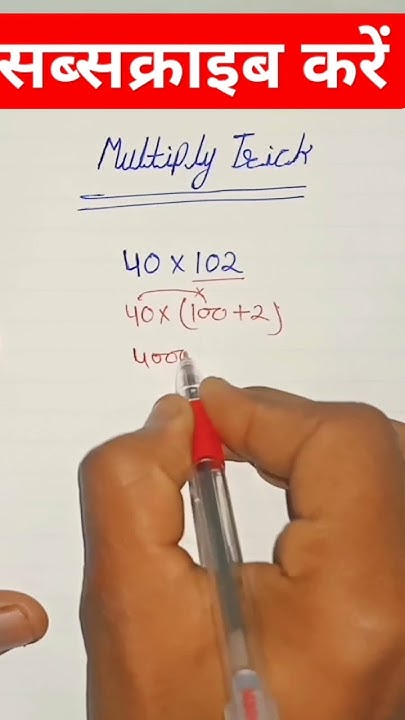 सब्सक्राइब करें
Multiply Trick
40 × 102
40 × (100 + 2)
4000